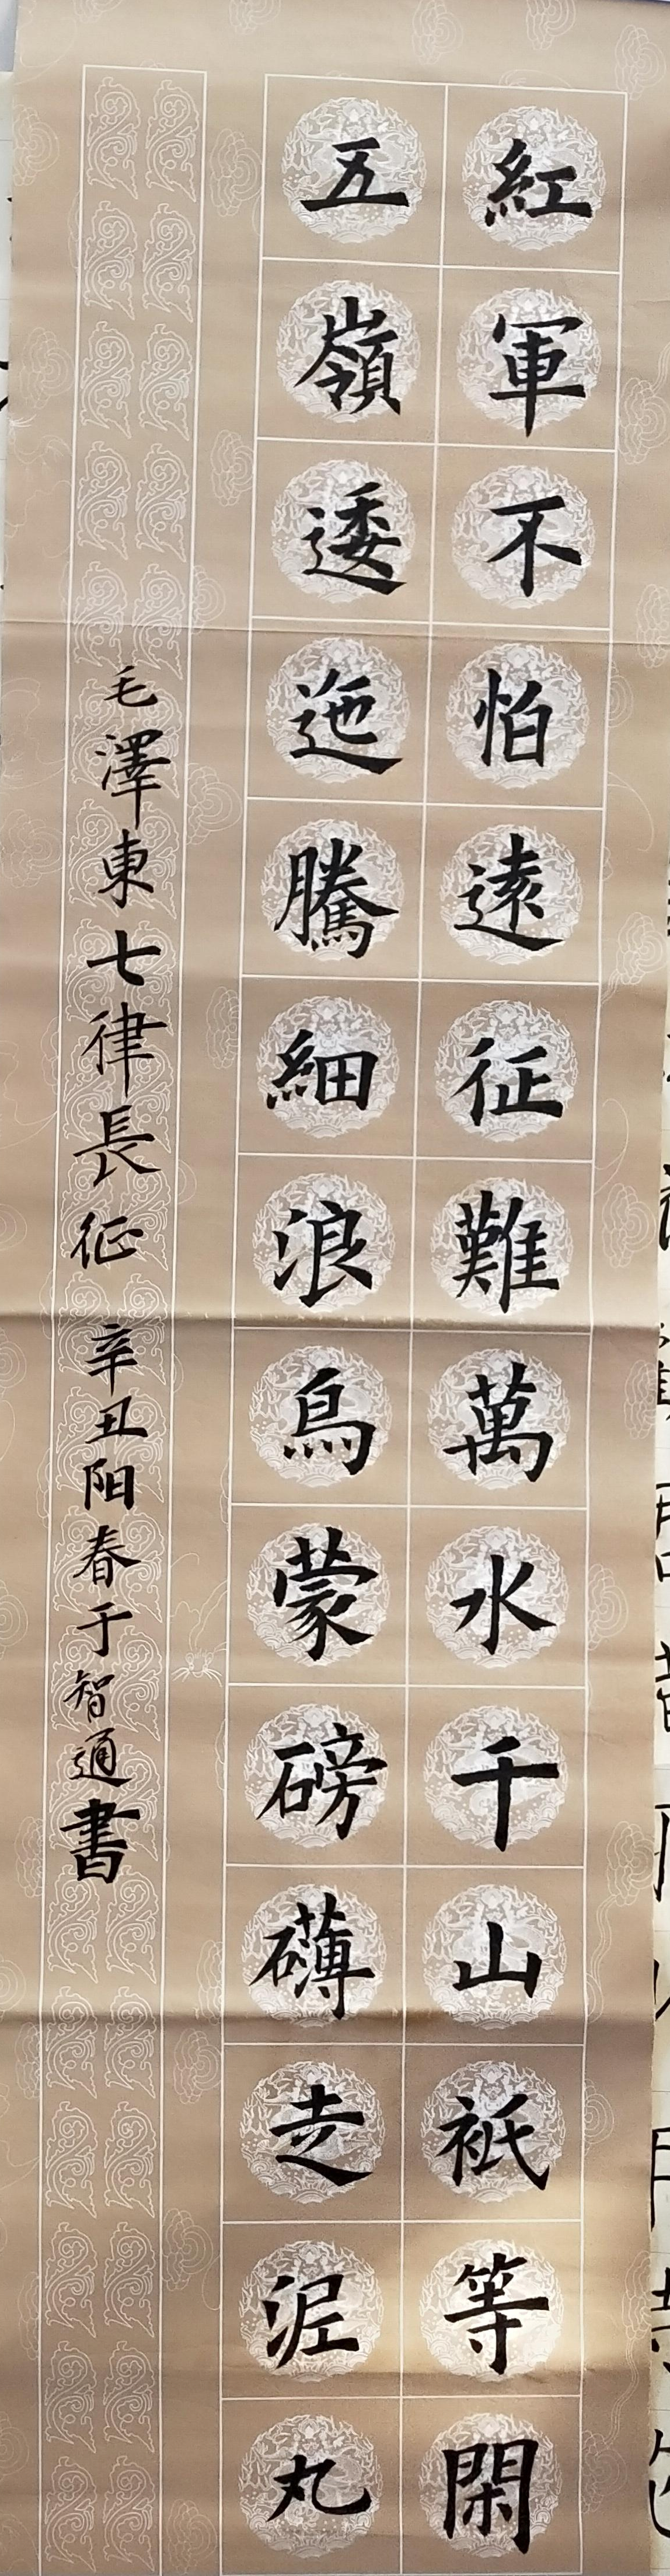 紅軍不怕遠征難萬水千山衹等閑
五嶺逶迤騰細浪烏蒙磅礴走泥丸
毛澤東七律長征 辛丑阳春于智通書